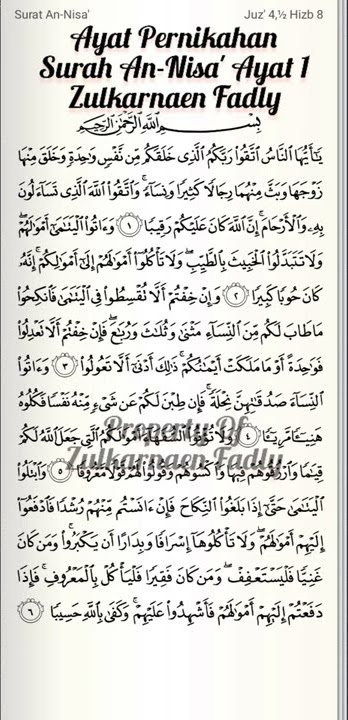 Surat An-Nisa' Juz' 4,½ Hizb 8
Ayat Pernikahan
Surah An-Nisa' Ayat 1
Zulkarnaen Fadly
بِسْمِ اللَّهِ الرَّحْمَٰنِ الرَّحِيمِ
يَا أَيُّهَا النَّاسُ اتَّقُوا رَبَّكُمُ الَّذِي خَلَقَكُمْ مِنْ نَفْسٍ وَاحِدَةٍ وَخَلَقَ مِنْهَا
زَوْجَهَا وَبَثَّ مِنْهُمَا رِجَالًا كَثِيرًا وَنِسَاءً ۚ وَاتَّقُوا اللَّهَ الَّذِي تَسَاءَلُونَ
بِهِ وَالْأَرْحَامَ ۚ إِنَّ اللَّهَ كَانَ عَلَيْكُمْ رَقِيبًا ١ وَآتُوا الْيَتَامَىٰ أَمْوَالَهُمْ ۖ
وَلَا تَتَبَدَّلُوا الْخَبِيثَ بِالطَّيِّبِ ۖ وَلَا تَأْكُلُوا أَمْوَالَهُمْ إِلَىٰ أَمْوَالِكُمْ ۚ إِنَّهُ
كَانَ حُوبًا كَبِيرًا ٢ وَإِنْ خِفْتُمْ أَلَّا تُقْسِطُوا فِي الْيَتَامَىٰ فَانْكِحُوا
مَا طَابَ لَكُمْ مِنَ النِّسَاءِ مَثْنَىٰ وَثُلَاثَ وَرُبَاعَ ۖ فَإِنْ خِفْتُمْ أَلَّا تَعْدِلُوا
فَوَاحِدَةً أَوْ مَا مَلَكَتْ أَيْمَانُكُمْ ۚ ذَٰلِكَ أَدْنَىٰ أَلَّا تَعُولُوا ٣ وَآتُوا
النِّسَاءَ صَدُقَاتِهِنَّ نِحْلَةً ۚ فَإِنْ طِبْنَ لَكُمْ عَنْ شَيْءٍ مِنْهُ نَفْسًا فَكُلُوهُ
هَنِيئًا مَرِيئًا ٤ وَلَا تُؤْتُوا السُّفَهَاءَ أَمْوَالَكُمُ الَّتِي جَعَلَ اللَّهُ لَكُمْ
Property Of
قِيَامًا وَارْزُقُوهُمْ فِيهَا وَاكْسُوهُمْ وَقُولُوا لَهُمْ قَوْلًا مَعْرُوفًا ٥ وَابْتَلُوا
Zulkarnaen Fadly
الْيَتَامَىٰ حَتَّىٰ إِذَا بَلَغُوا النِّكَاحَ فَإِنْ آنَسْتُمْ مِنْهُمْ رُشْدًا فَادْفَعُوا
إِلَيْهِمْ أَمْوَالَهُمْ ۖ وَلَا تَأْكُلُوهَا إِسْرَافًا وَبِدَارًا أَنْ يَكْبَرُوا ۚ وَمَنْ كَانَ
غَنِيًّا فَلْيَسْتَعْفِفْ ۖ وَمَنْ كَانَ فَقِيرًا فَلْيَأْكُلْ بِالْمَعْرُوفِ ۚ فَإِذَا
دَفَعْتُمْ إِلَيْهِمْ أَمْوَالَهُمْ فَأَشْهِدُوا عَلَيْهِمْ ۚ وَكَفَىٰ بِاللَّهِ حَسِيبًا ٦